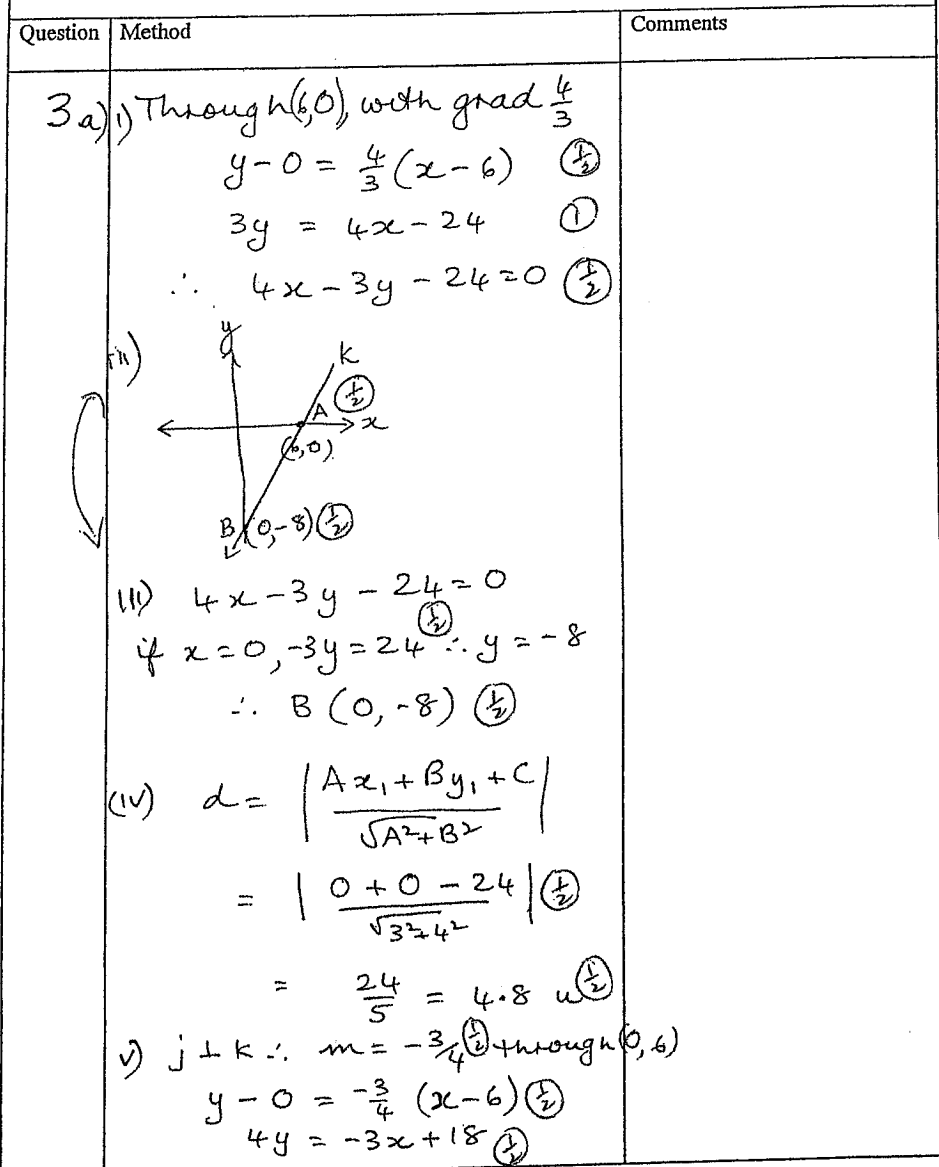 Question Method Comments
3 a) i) Through (6,0), with grad 4/3
y - 0 = 4/3 (x - 6) (1/2)
3y = 4x - 24 (1)
∴ 4x - 3y - 24 = 0 (1/2)
ii)
y
k
(1/2)
A
x
(6,0)
B (0,-8) (1/2)
III) 4x - 3y - 24 = 0
if x = 0, -3y = 24 (1/2) ∴ y = -8
∴ B (0, -8) (1/2)
(IV) d = | Ax₁ + By₁ + C / √A² + B² |
= | 0 + 0 - 24 / √3² + 4² | (1/2)
= 24/5 = 4.8 u (1/2)
v) j ⊥ k ∴ m = -3/4 (1/2) through (0, 6)
y - 0 = -3/4 (x - 6) (1/2)
4y = -3x + 18 (1/2)